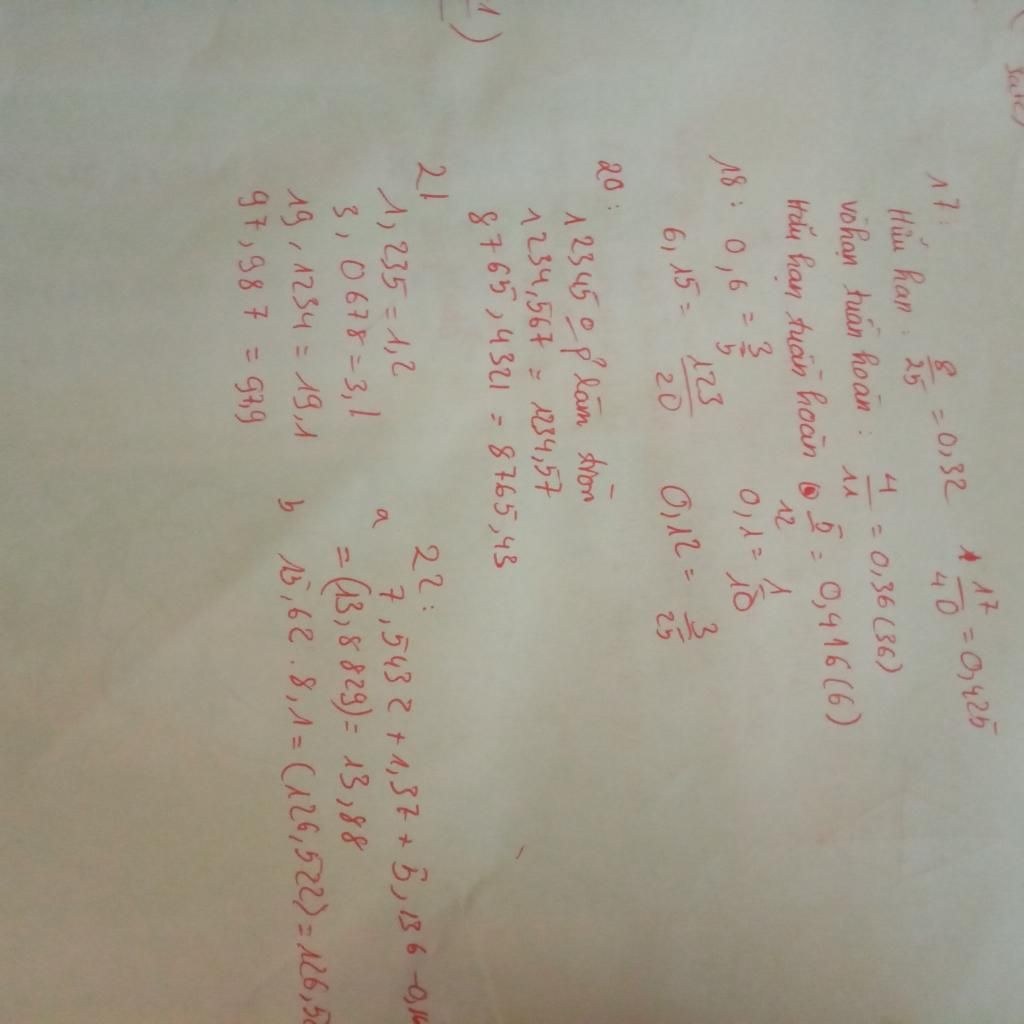 17:
Hữu hạn: 8/25 = 0,32 17/40 = 0,425
vô hạn tuần hoàn: 4/11 = 0,36(36)
Hữu hạn tuần hoàn 5/12 = 0,416(6)
18: 0,6 = 3/5 0,1 = 1/10
6,15 = 123/20 0,12 = 3/25
20:
12345 làm tròn
1234,567 = 1234,57
8765,4321 = 8765,43
21
1,235 = 1,2
3,0678 = 3,1
19,1234 = 19,1
97,987 = 97,9
22:
a 7,5432 + 1,37 + 5,136 - 0,16
= (13,8829) = 13,88
b 15,62 . 8,1 = (126,522) = 126,5